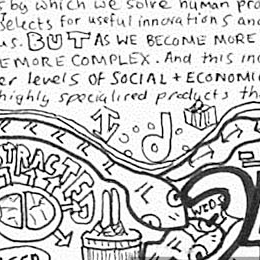 s by which we solve human pro
selects for useful innovations an
us. BUT AS WE BECOME MORE
E MORE COMPLEX. And this in
er levels OF SOCIAL + ECONOMI
highly specialized products th
d
TRACTED
WEDS